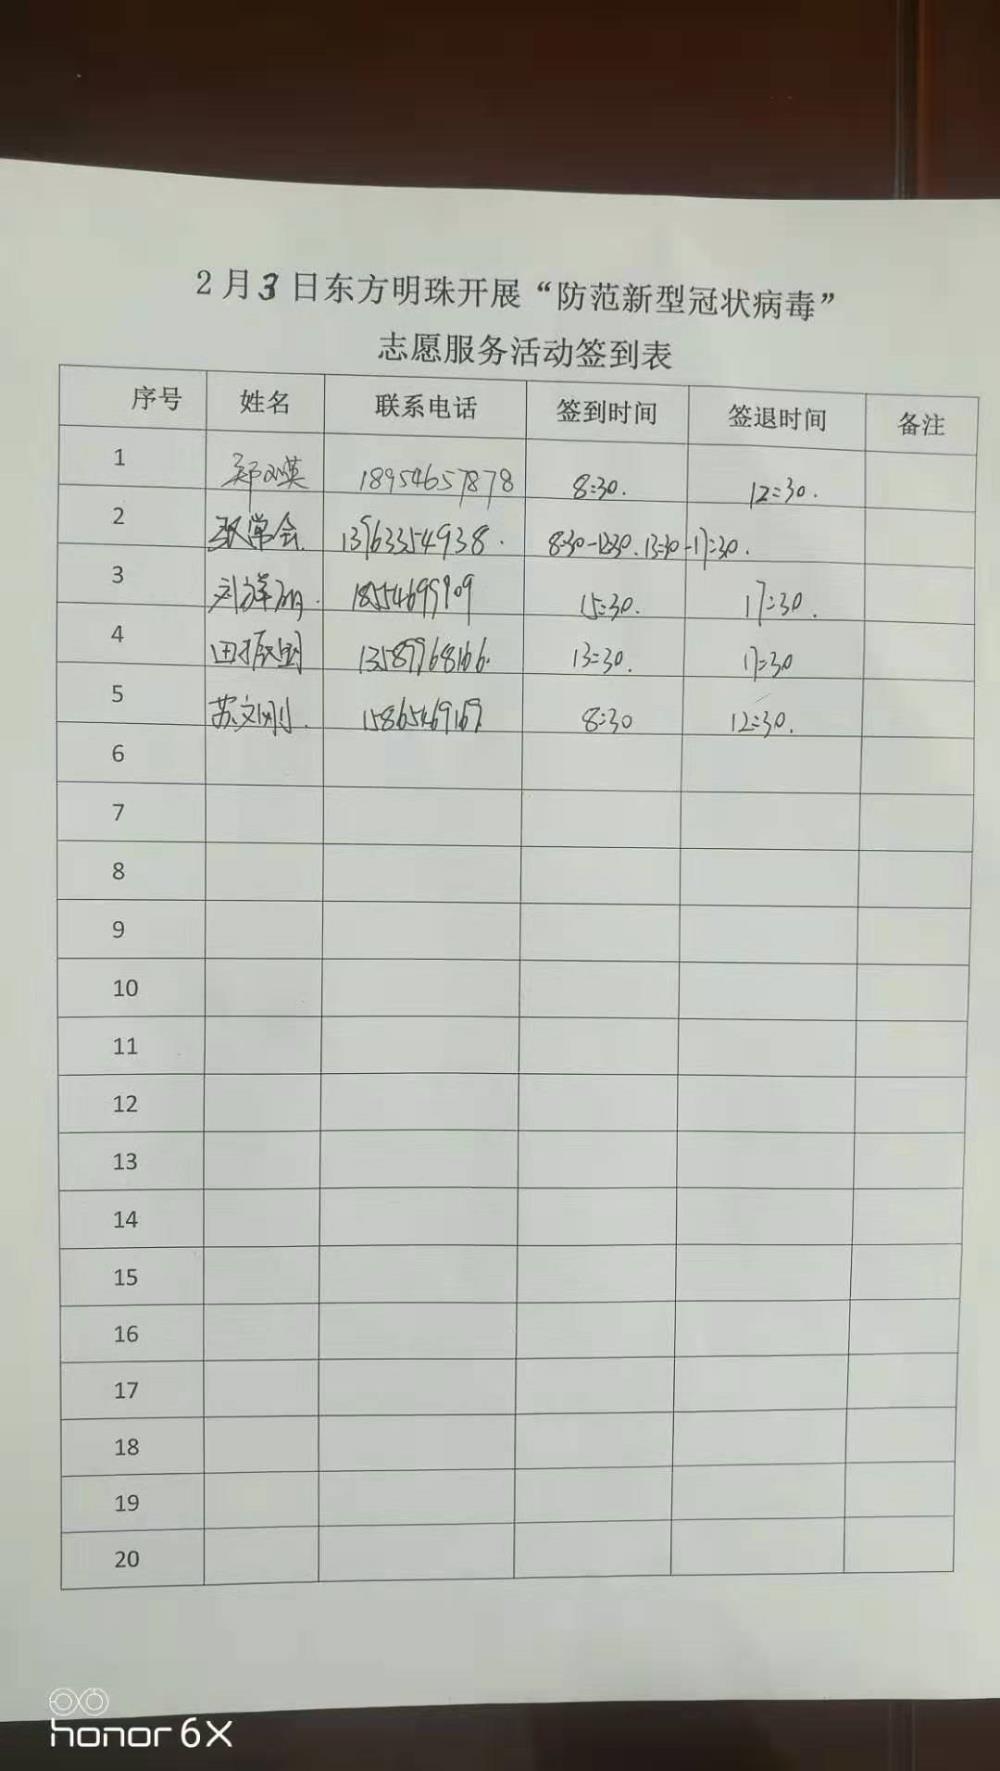 2月3日东方明珠开展“防范新型冠状病毒”
志愿服务活动签到表
序号 姓名 联系电话 签到时间 签退时间 备注
1 郑小英 18954657878 8:30. 12:30.
2 张学会 13963354938. 8:30-12:30.13:30-17:30.
3 刘 15:30. 17:30.
4 田振国 13:30. 17:30
5 苏文刚. 15865469169 8:30 12:30.
6
7
8
9
10
11
12
13
14
15
16
17
18
19
20
honor 6X